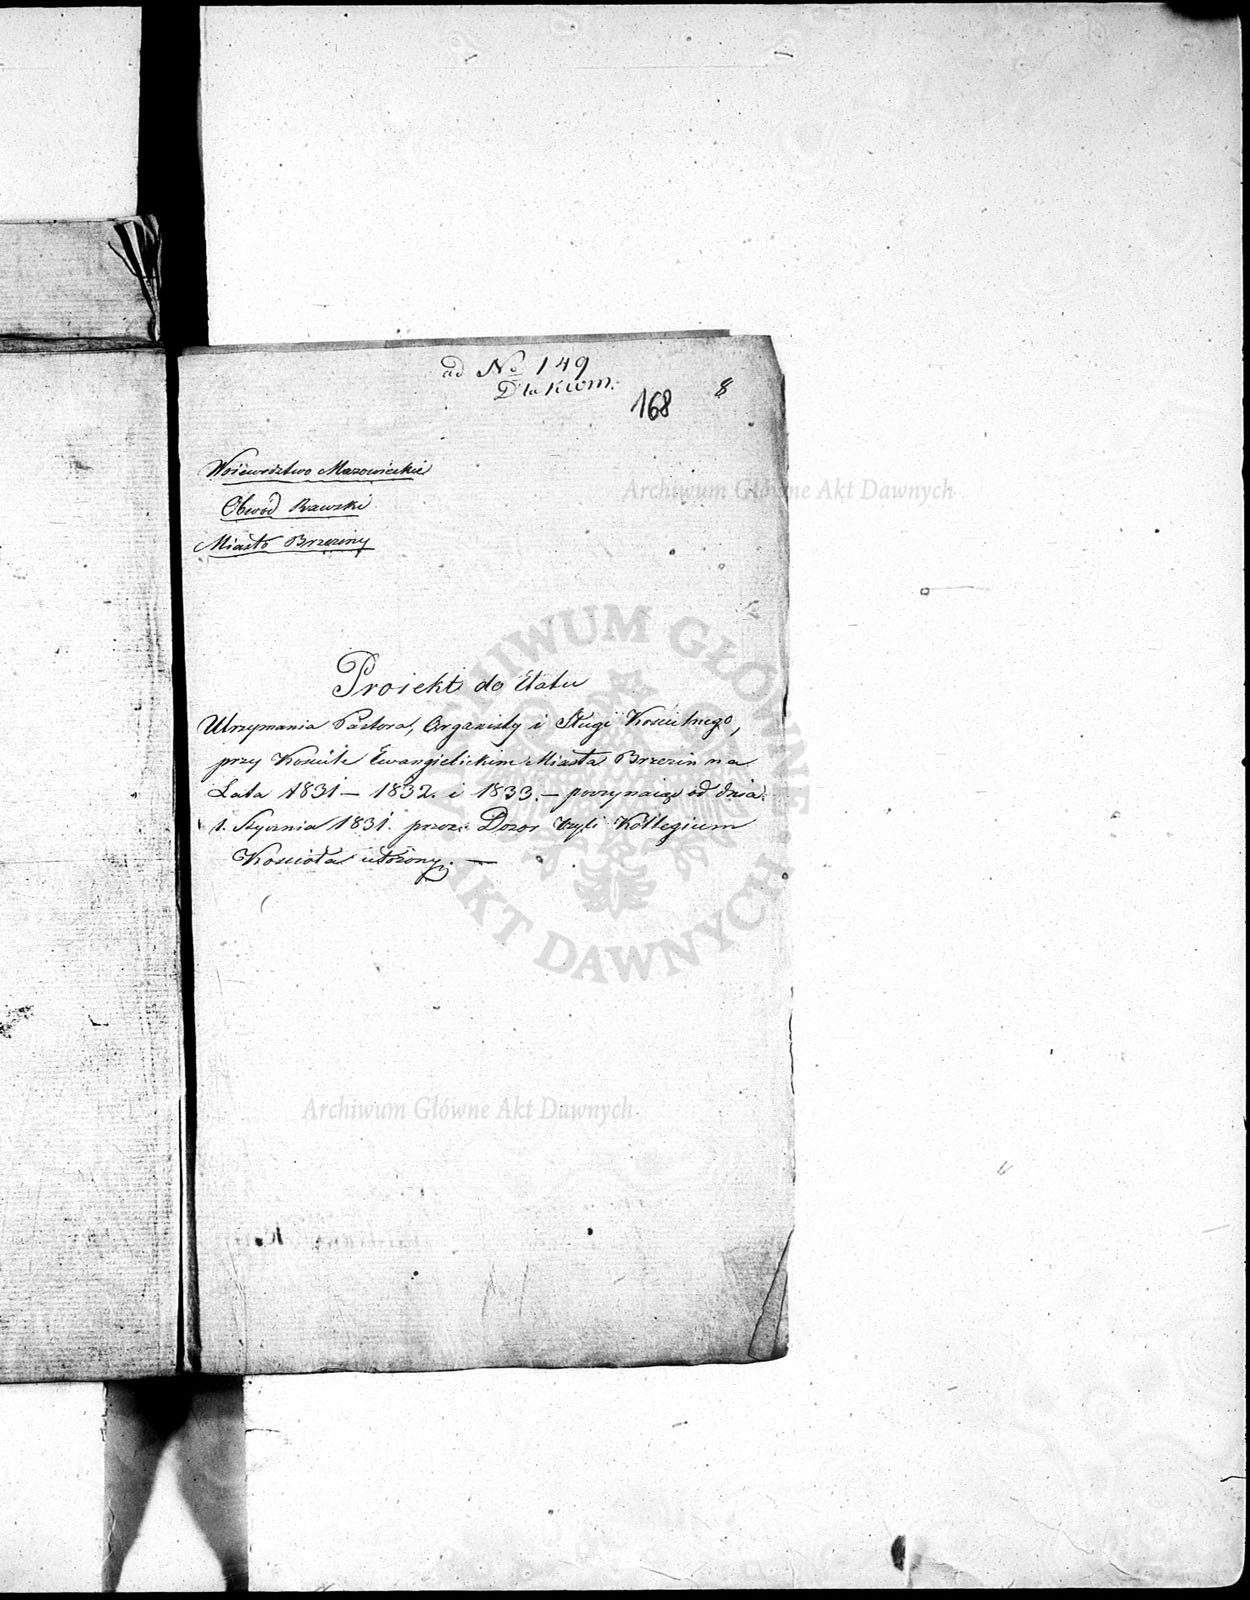 ad No 149
168
8
Województwo Mazowieckie
Obwód Rawski
Miasto Brzeziny
Archiwum Główne Akt Dawnych
Proiekt do Etatu
Utrzymania Pastora, Organisty i Sługi Kościelnego,
przy Kościele Ewangielickim Miasta Brzezin na
Lata 1831 – 1832. i 1833. – poczynaiąc od dnia
1. Stycznia 1831. przez Dozor czyli Kollegium
Kościoła ułożony. –
ARCHIWUM GŁÓWNE AKT DAWNYCH
Archiwum Główne Akt Dawnych